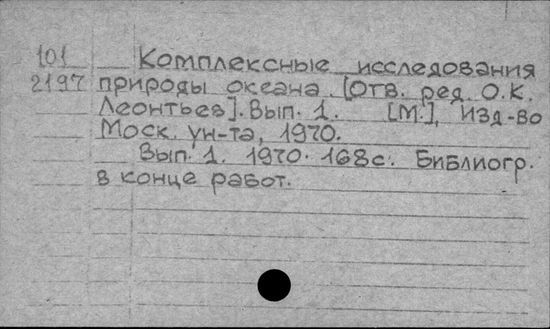 101 Комплексные исследования
2197 природы океана. [Отв. ред. О.К.
Леонтьев]. Вып. 1. [М.], Изд-во
Моск. ун-та, 1970.
Вып. 1. 1970. 168с. Библиогр.
в конце работ.